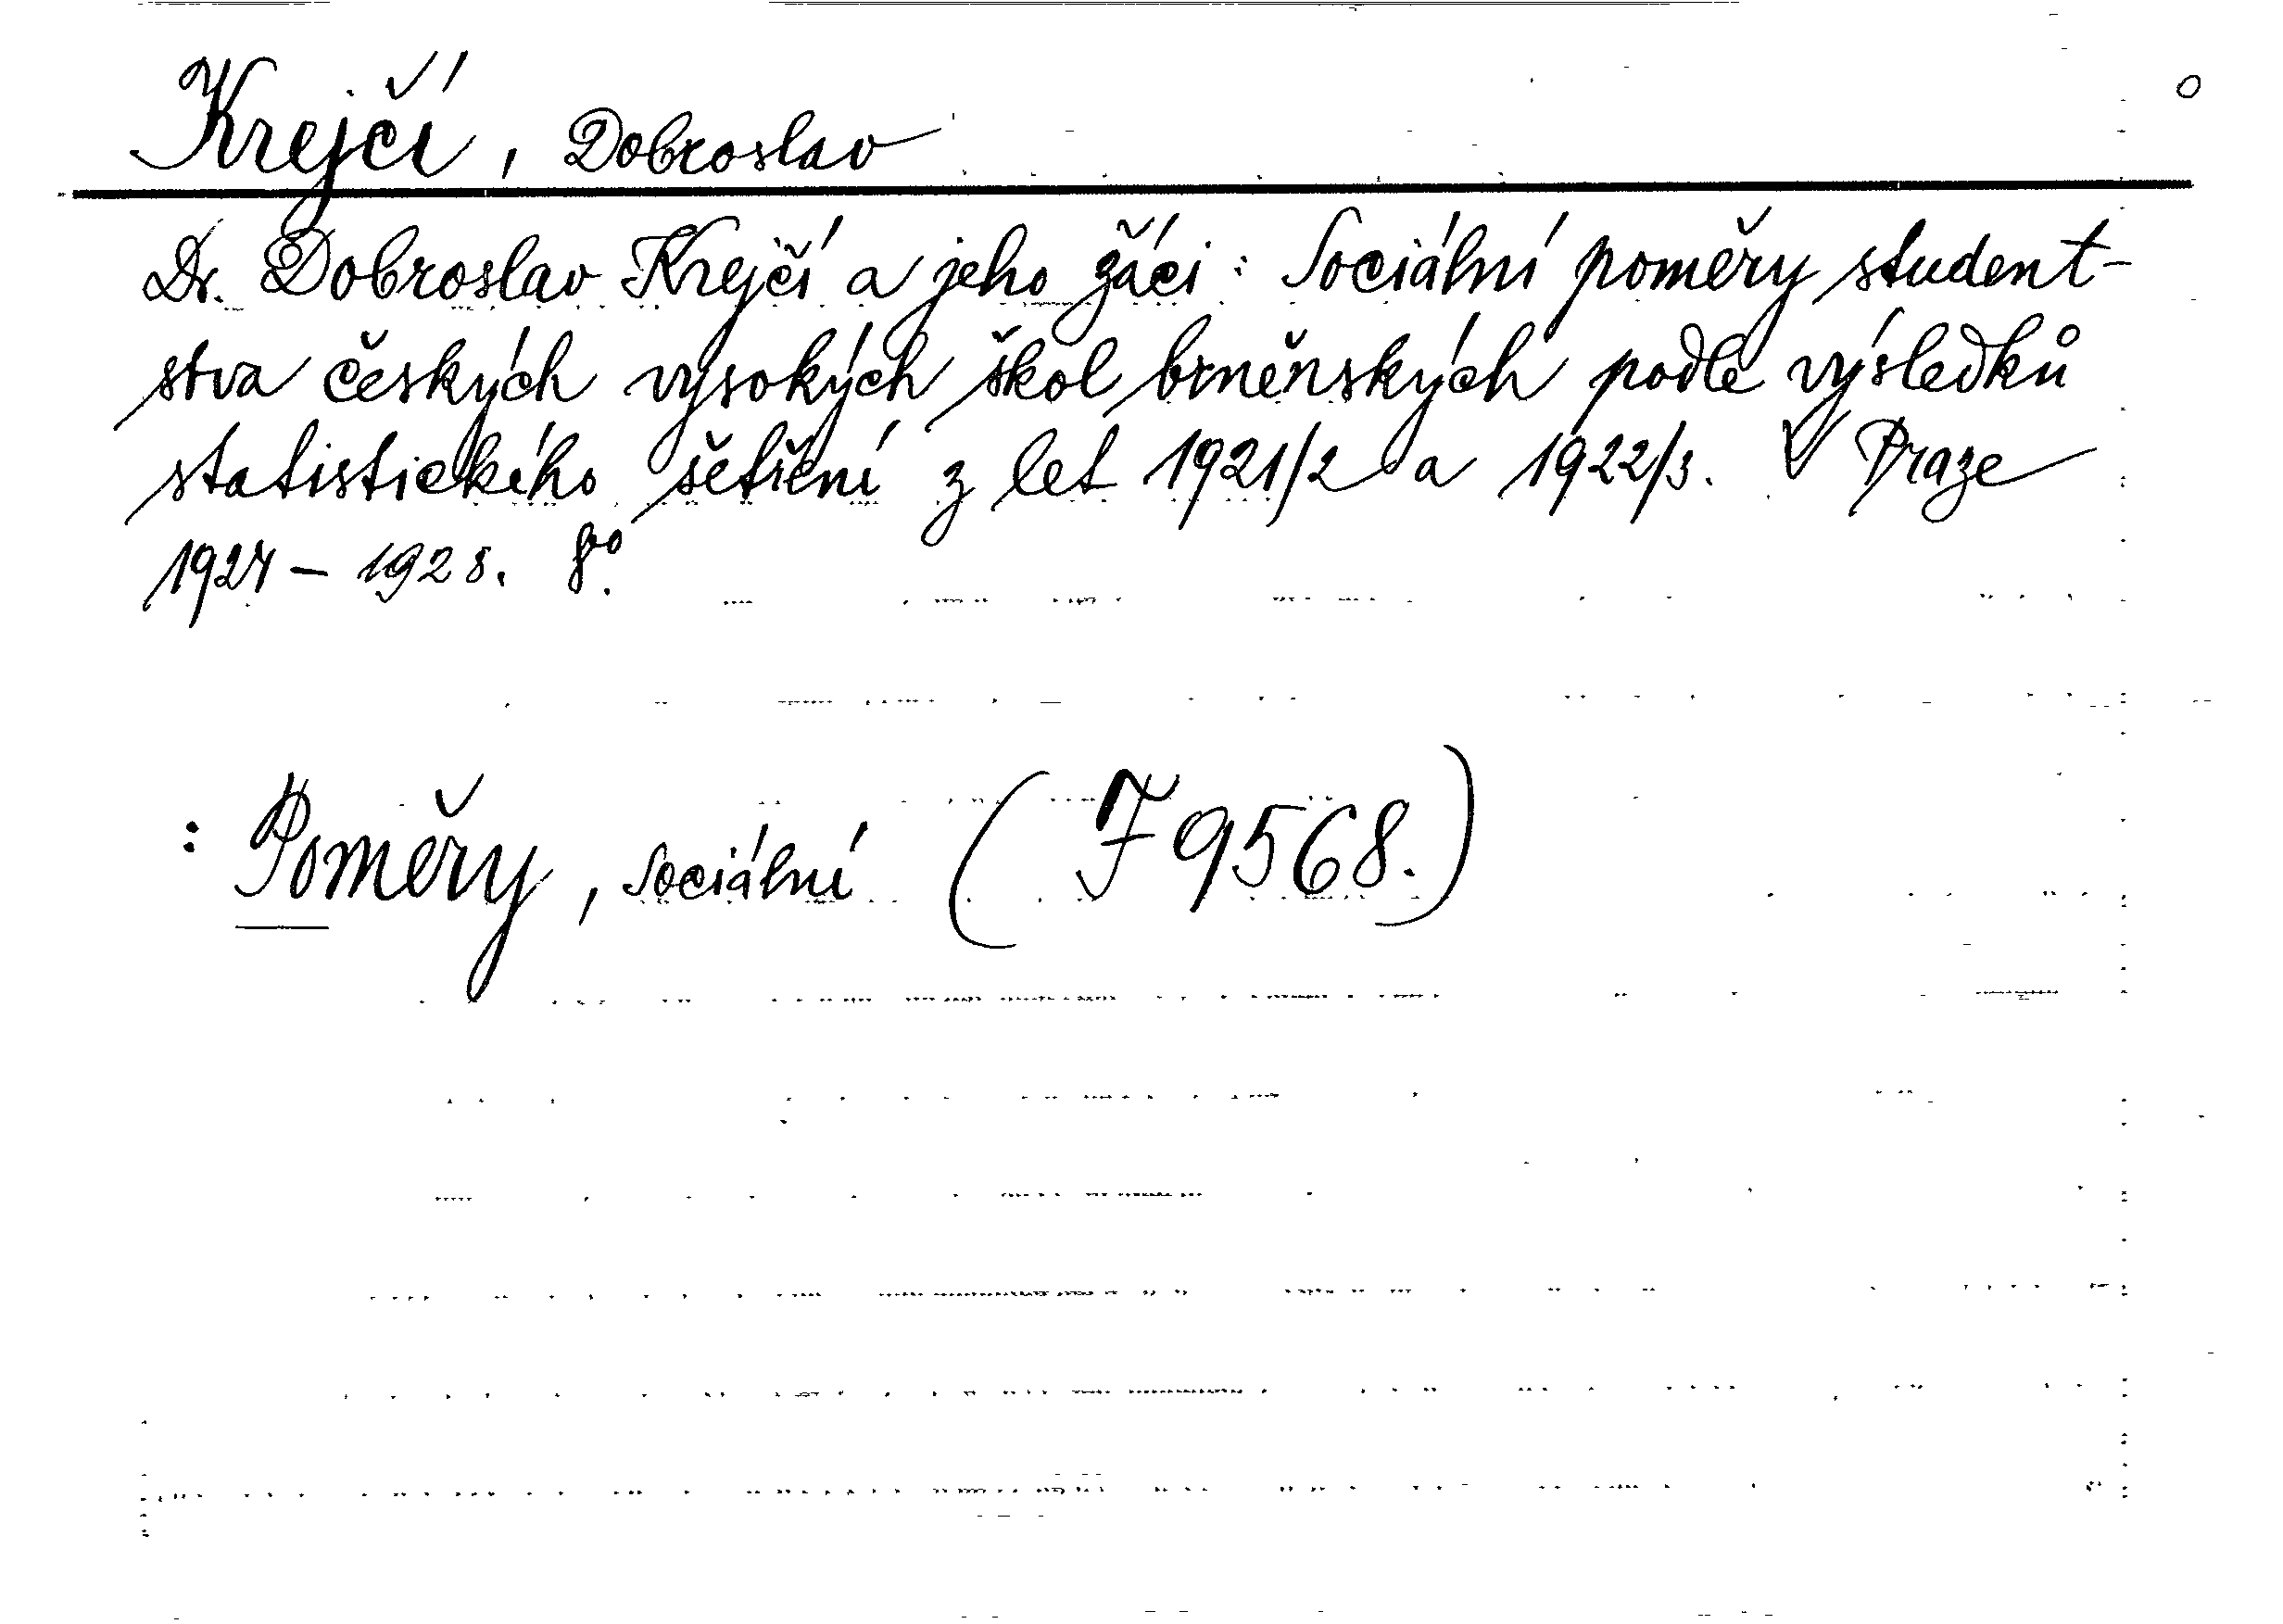 Krejčí, Dobroslav
Dr. Dobroslav Krejčí a jeho žáci: Sociální poměry student-
stva českých vysokých škol brněnských podle výsledků
statistického šetření z let 1921/2 a 1922/3. V Praze
1924 – 1928. 8°.
: Poměry, sociální (F 9568.)